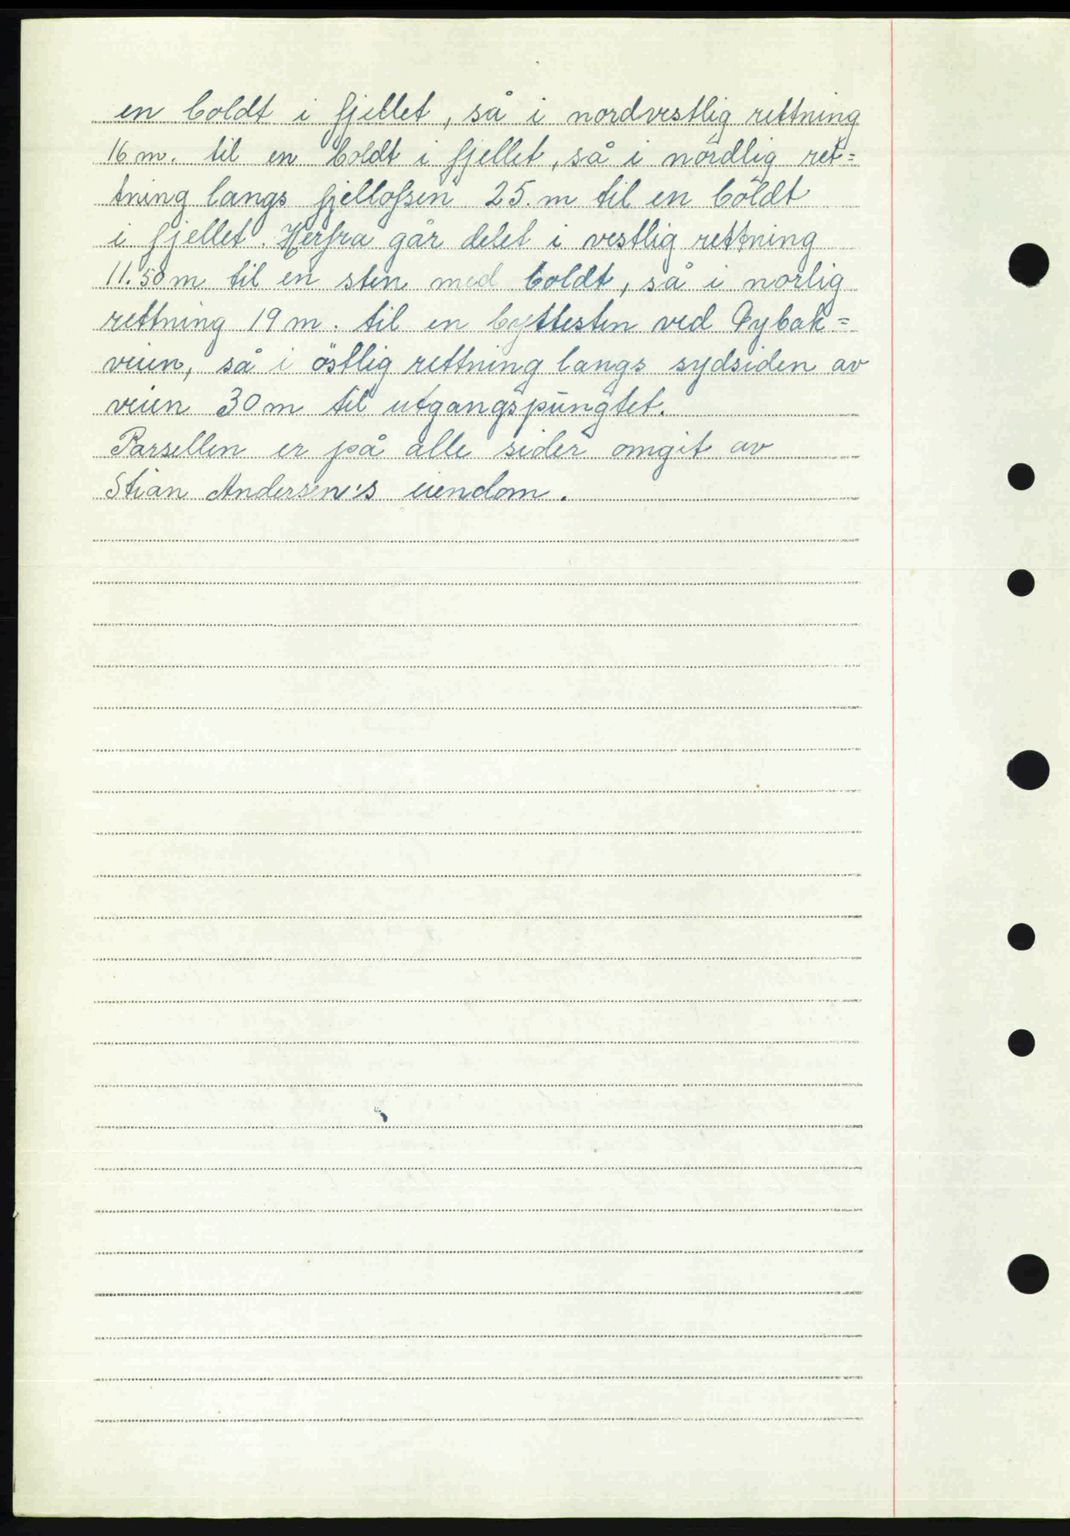 en boldt i fjellet, så i nordvestlig rettning
16 m. til en boldt i fjellet, så i nordlig ret=
tning langs fjellofsen 25. m til en boldt
i fjellet. Herfra går delet i vestlig rettning
11.50 m til en sten med boldt, så i norlig
rettning 19 m. til en byttesten ved Dybak=
veien, så i östlig rettning langs sydsiden av
veien 30 m til utgangspungtet.
Parsellen er på alle sider omgit av
Stian Andersen's eiendom.